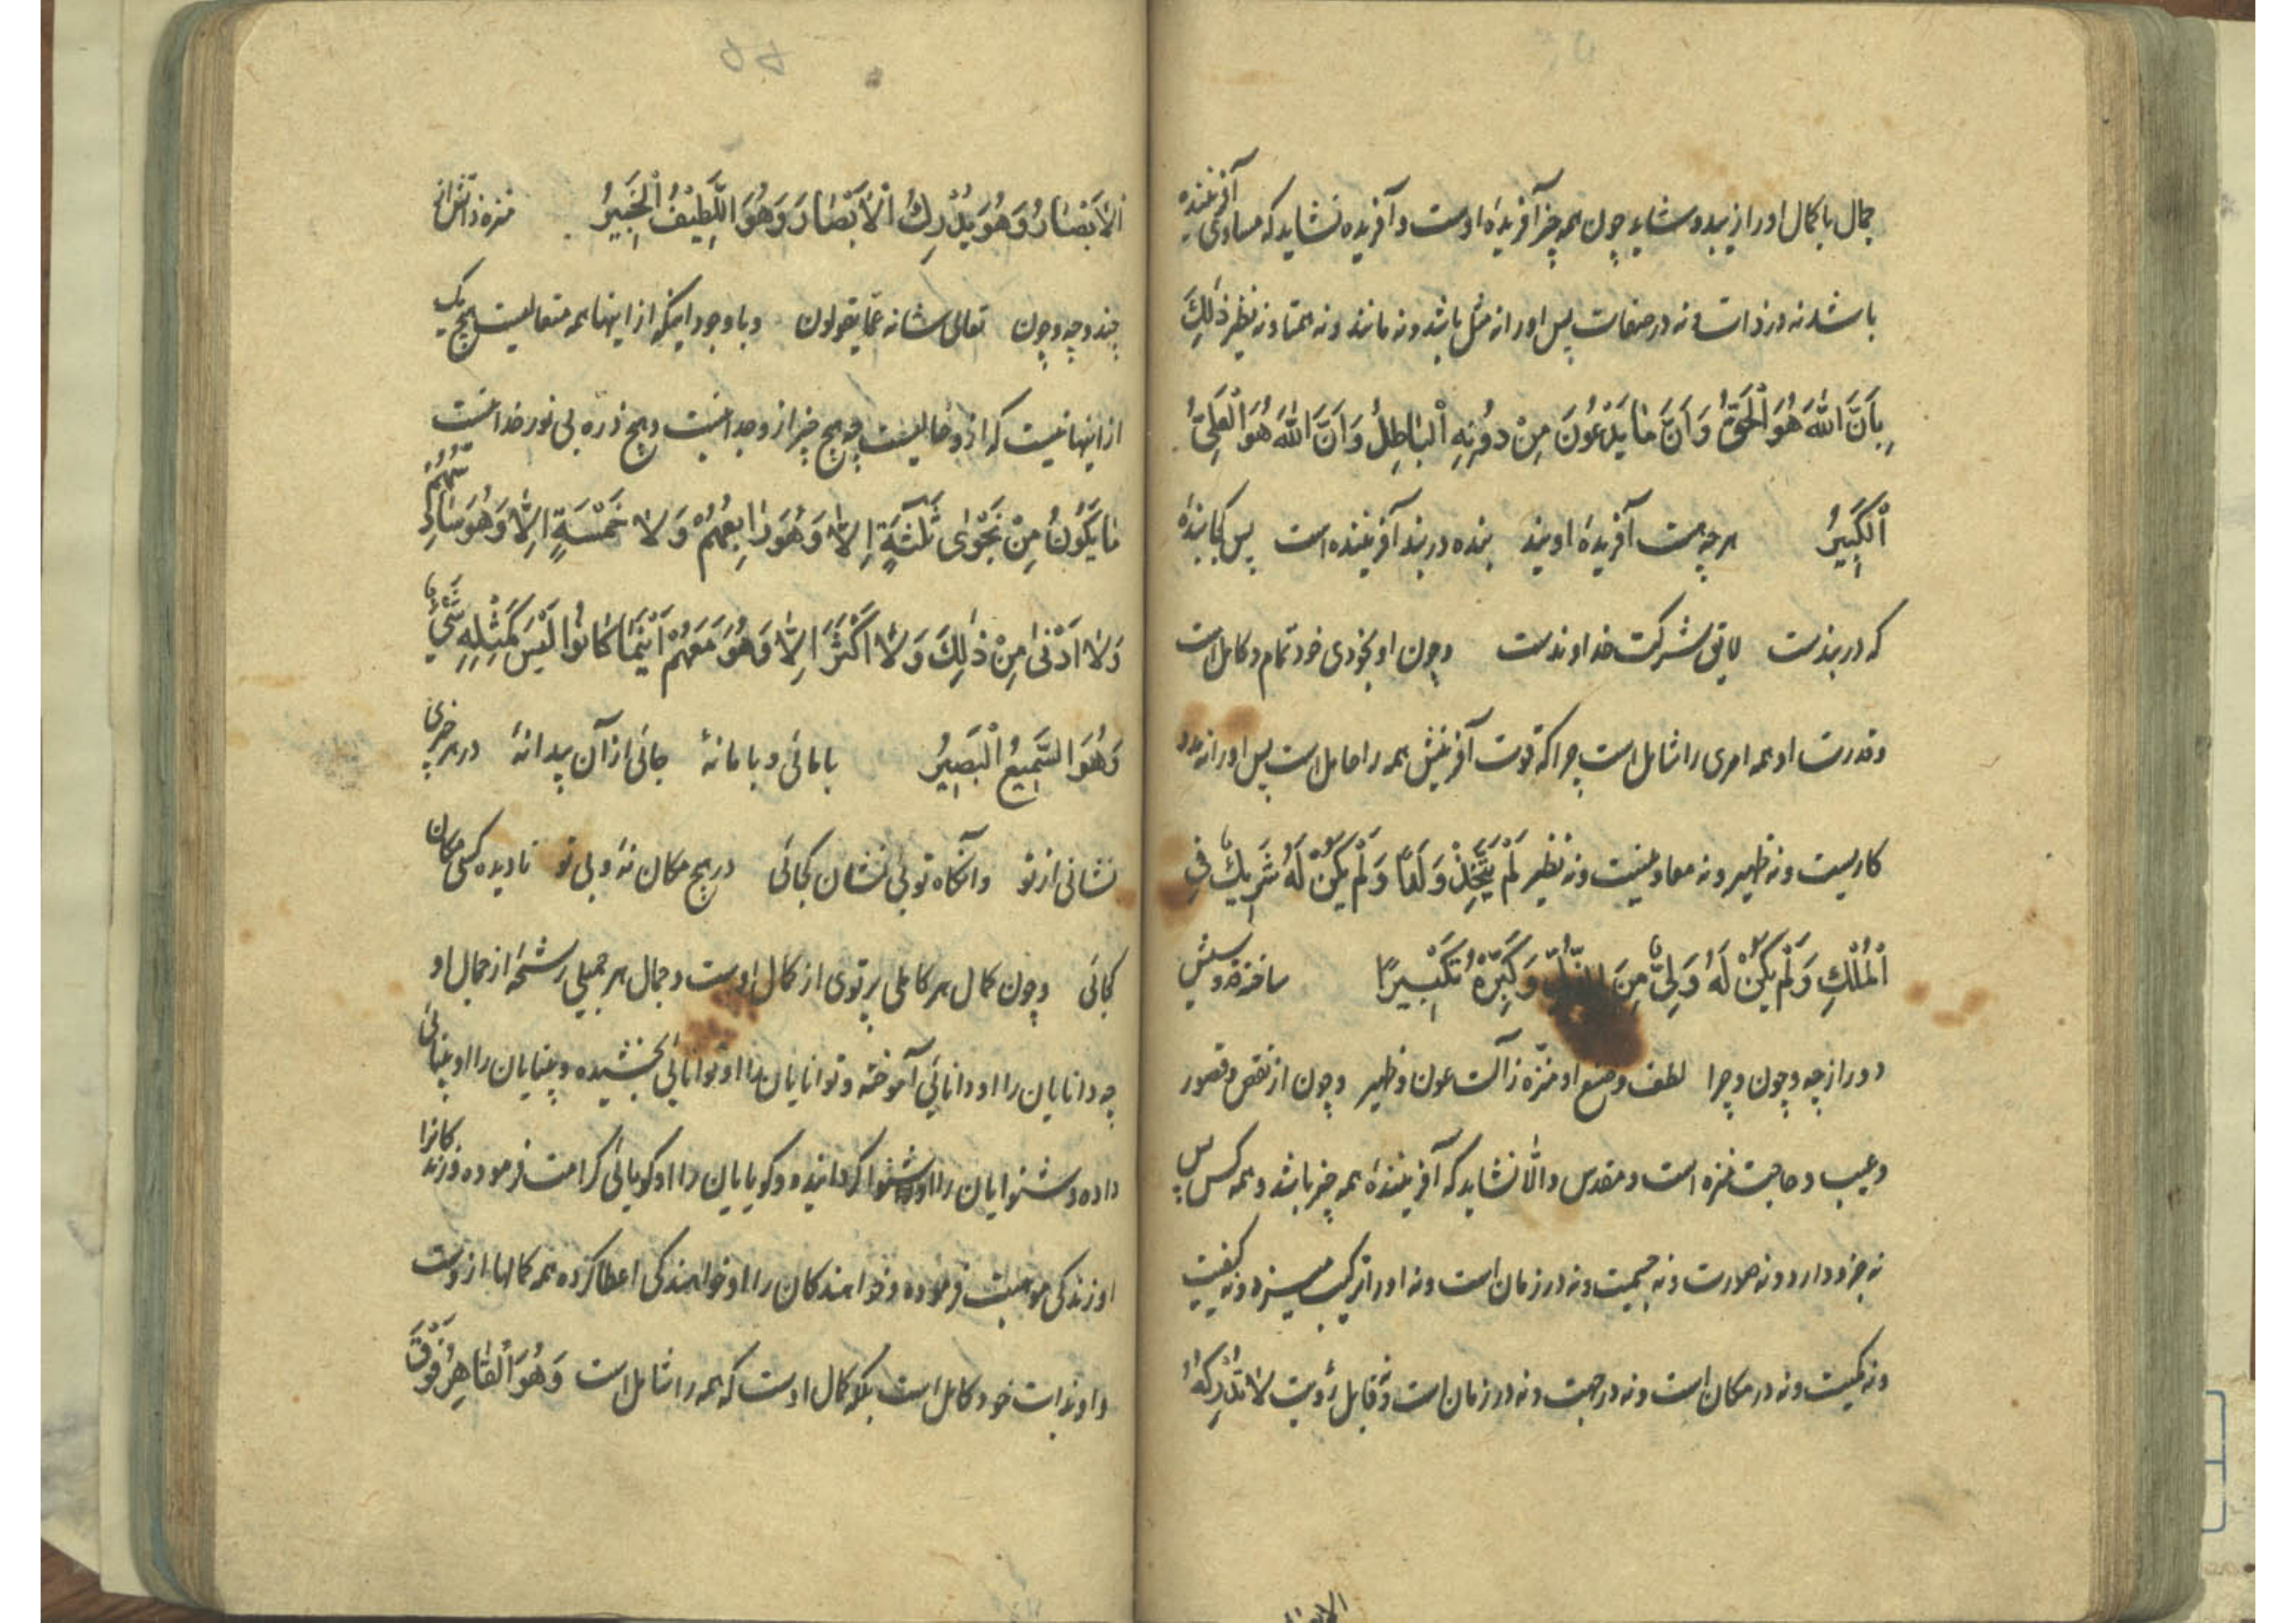 جمال باکمال او را زیبد و شاید چون همه چیز آفریدهٔ اوست و آفریده نشاید که مساوی آفریننده
باشد نه در ذات و نه در صفات پس او را نه مثل باشد و نه مانند و نه همتا و نه نظیر ذٰلِكَ
بِاَنَّ اللّٰهَ هُوَ الْحَقُّ وَاَنَّ مٰا یَدْعُونَ مِنْ دُونِهِ الْبٰاطِلُ وَاَنَّ اللّٰهَ هُوَ الْعَلِیُّ
الْکَبِیرُ هر چه هست آفریدهٔ اویند بنده در بند آفریننده است پس کجا بندهٔ
که در بندست لایق شرکت خداوندست و چون او بخودی خود تمام و کامل است
و قدرت او همه امری را شامل است چرا که قوت آفرینش همه را حامل است پس او را نه مدد
کاریست و نه ظهیر و نه معاونیست و نه نظیر لَمْ یَتَّخِذْ وَلَدًا وَلَمْ یَکُنْ لَهُ شَرِیكٌ فِی
الْمُلْكِ وَلَمْ یَکُنْ لَهُ وَلِیٌّ مِنَ الذُّلِّ وَکَبِّرْهُ تَکْبِیرًا ساخته قدوسیش
دور از چه و چون و چرا لطف و صنع او منزّه ز آلت عون و ظهیر و چون از نقص و قصور
و عیب و حاجت منزه است و مقدس و الّا نشاید که آفرینندهٔ همه چیز باشد و همه کس پس
نه جزو دارد و نه صورت و نه جسمیت و نه در زمان است و نه او را ترکیب میسزد و نه کیفیت
و نه کمیت و نه در مکان است و نه در جهت و نه در زمان است و نه قابل رؤیت لا تُدْرِکُهُ
الْاَبْصٰارُ وَهُوَ یُدْرِكُ الْاَبْصٰارَ وَهُوَ اللَّطِیفُ الْخَبِیرُ منزه ذاتش از
چند و چه و چون تعالی شانه عمّا یقولون و با وجود اینکه از اینها همه متعالیست هیچ یک
از اینها نیست که ازو خالیست چه هیچ چیز ازو جدا نیست و هیچ ذره بی نور خدا نیست
مٰا یَکُونُ مِنْ نَجْوٰی ثَلٰثَةٍ اِلّٰا وَهُوَ رٰابِعُهُمْ وَلٰا خَمْسَةٍ اِلّٰا وَهُوَ سٰادِسُهُمْ
وَلٰا اَدْنٰی مِنْ ذٰلِكَ وَلٰا اَکْثَرَ اِلّٰا وَهُوَ مَعَهُمْ اَیْنَمٰا کٰانُوا لَیْسَ کَمِثْلِهِ شَیْءٌ
وَهُوَ السَّمِیعُ الْبَصِیرُ با مائی و با ما نهٔ جائی از آن پیدا نهٔ در هر چیزی
نشانی از تو وانگاه تو بی نشان کجائی در هیچ مکان نهٔ و بی تو نادیده کسی مکان
کجائی و چون کمال هر کاملی پرتوی از کمال اوست و جمال هر جمیلی رشحهٔ از جمال او
چه دانایان را او دانائی آموخته و توانایان را او توانائی بخشیده و بینایان را او بینائی
داده و شنوایان را او شنوا گردانیده و گویایان را او گویائی کرامت فرموده و زندگانرا
او زندگی موهبت فرموده و خواهندگان را او خواهندگی اعطا کرده همه کمالها ازوست
و او بذات خود کامل است بلکه کمال اوست که همه را شامل است وَهُوَ الْقٰاهِرُ فَوْقَ